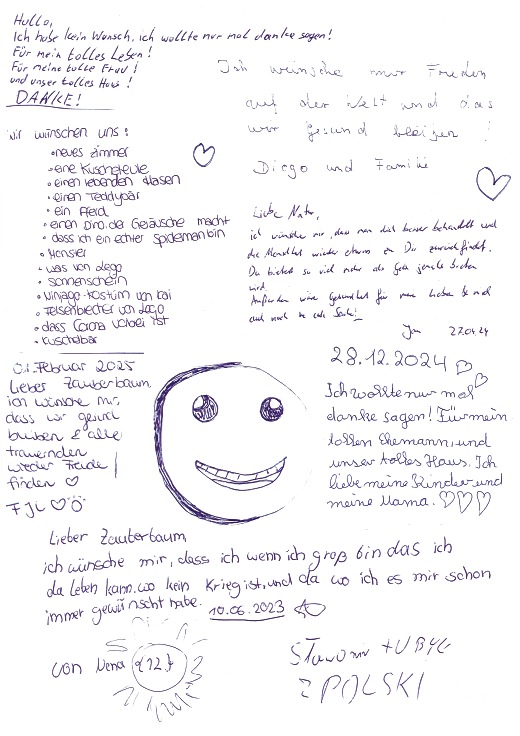 Hallo,
Ich habe kein Wunsch, ich wollte nur mal danke sagen!
Für mein tolles Leben!
Für meine tolle Frau!
und unser tolles Haus!
DANKE!
Ich wünsche mir Frieden
auf der Welt und das
wir gesund bleiben!
Diego und Familie
Wir wünschen uns:
• neues Zimmer
• eine Kuscheleule
• einen lebenden Hasen
• einen Teddybär
• ein Pferd
• einen Dino, der Geräusche macht
• dass ich ein echter Spideman bin
• Monster
• was von Lego
• Sonnenschein
• Ninjago-Kostüm von Kai
• Felsenbrecher von Lego
• dass Corona vorbei ist
• Kuschelbär
Liebe Natur,
ich wünsche mir, dass man dich besser behandelt und
die Menschheit wieder etwas zu Dir zurückfindet.
Du bietest so viel mehr als Geld jemals bieten
wird.
Außerdem wäre Gesundheit für meine Lieben & mich
auch noch 'ne coole Sache!
27.04.24
01. Februar 2025
Lieber Zauberbaum,
ich wünsche mir,
dass wir gesund
bleiben & alle
trauernden
wieder Freude
finden
FJL
28.12.2024
Ich wollte nur mal
danke sagen! Für mein
tollen Ehemann, und
unser tolles Haus. Ich
liebe meine Kinder und
meine Mama.
Lieber Zauberbaum
ich wünsche mir, dass ich wenn ich groß bin das ich
da leben kann, wo kein Krieg ist, und da wo ich es mir schon
immer gewünscht habe. 10.06.2023
von Nena (12)
Z POLSKI